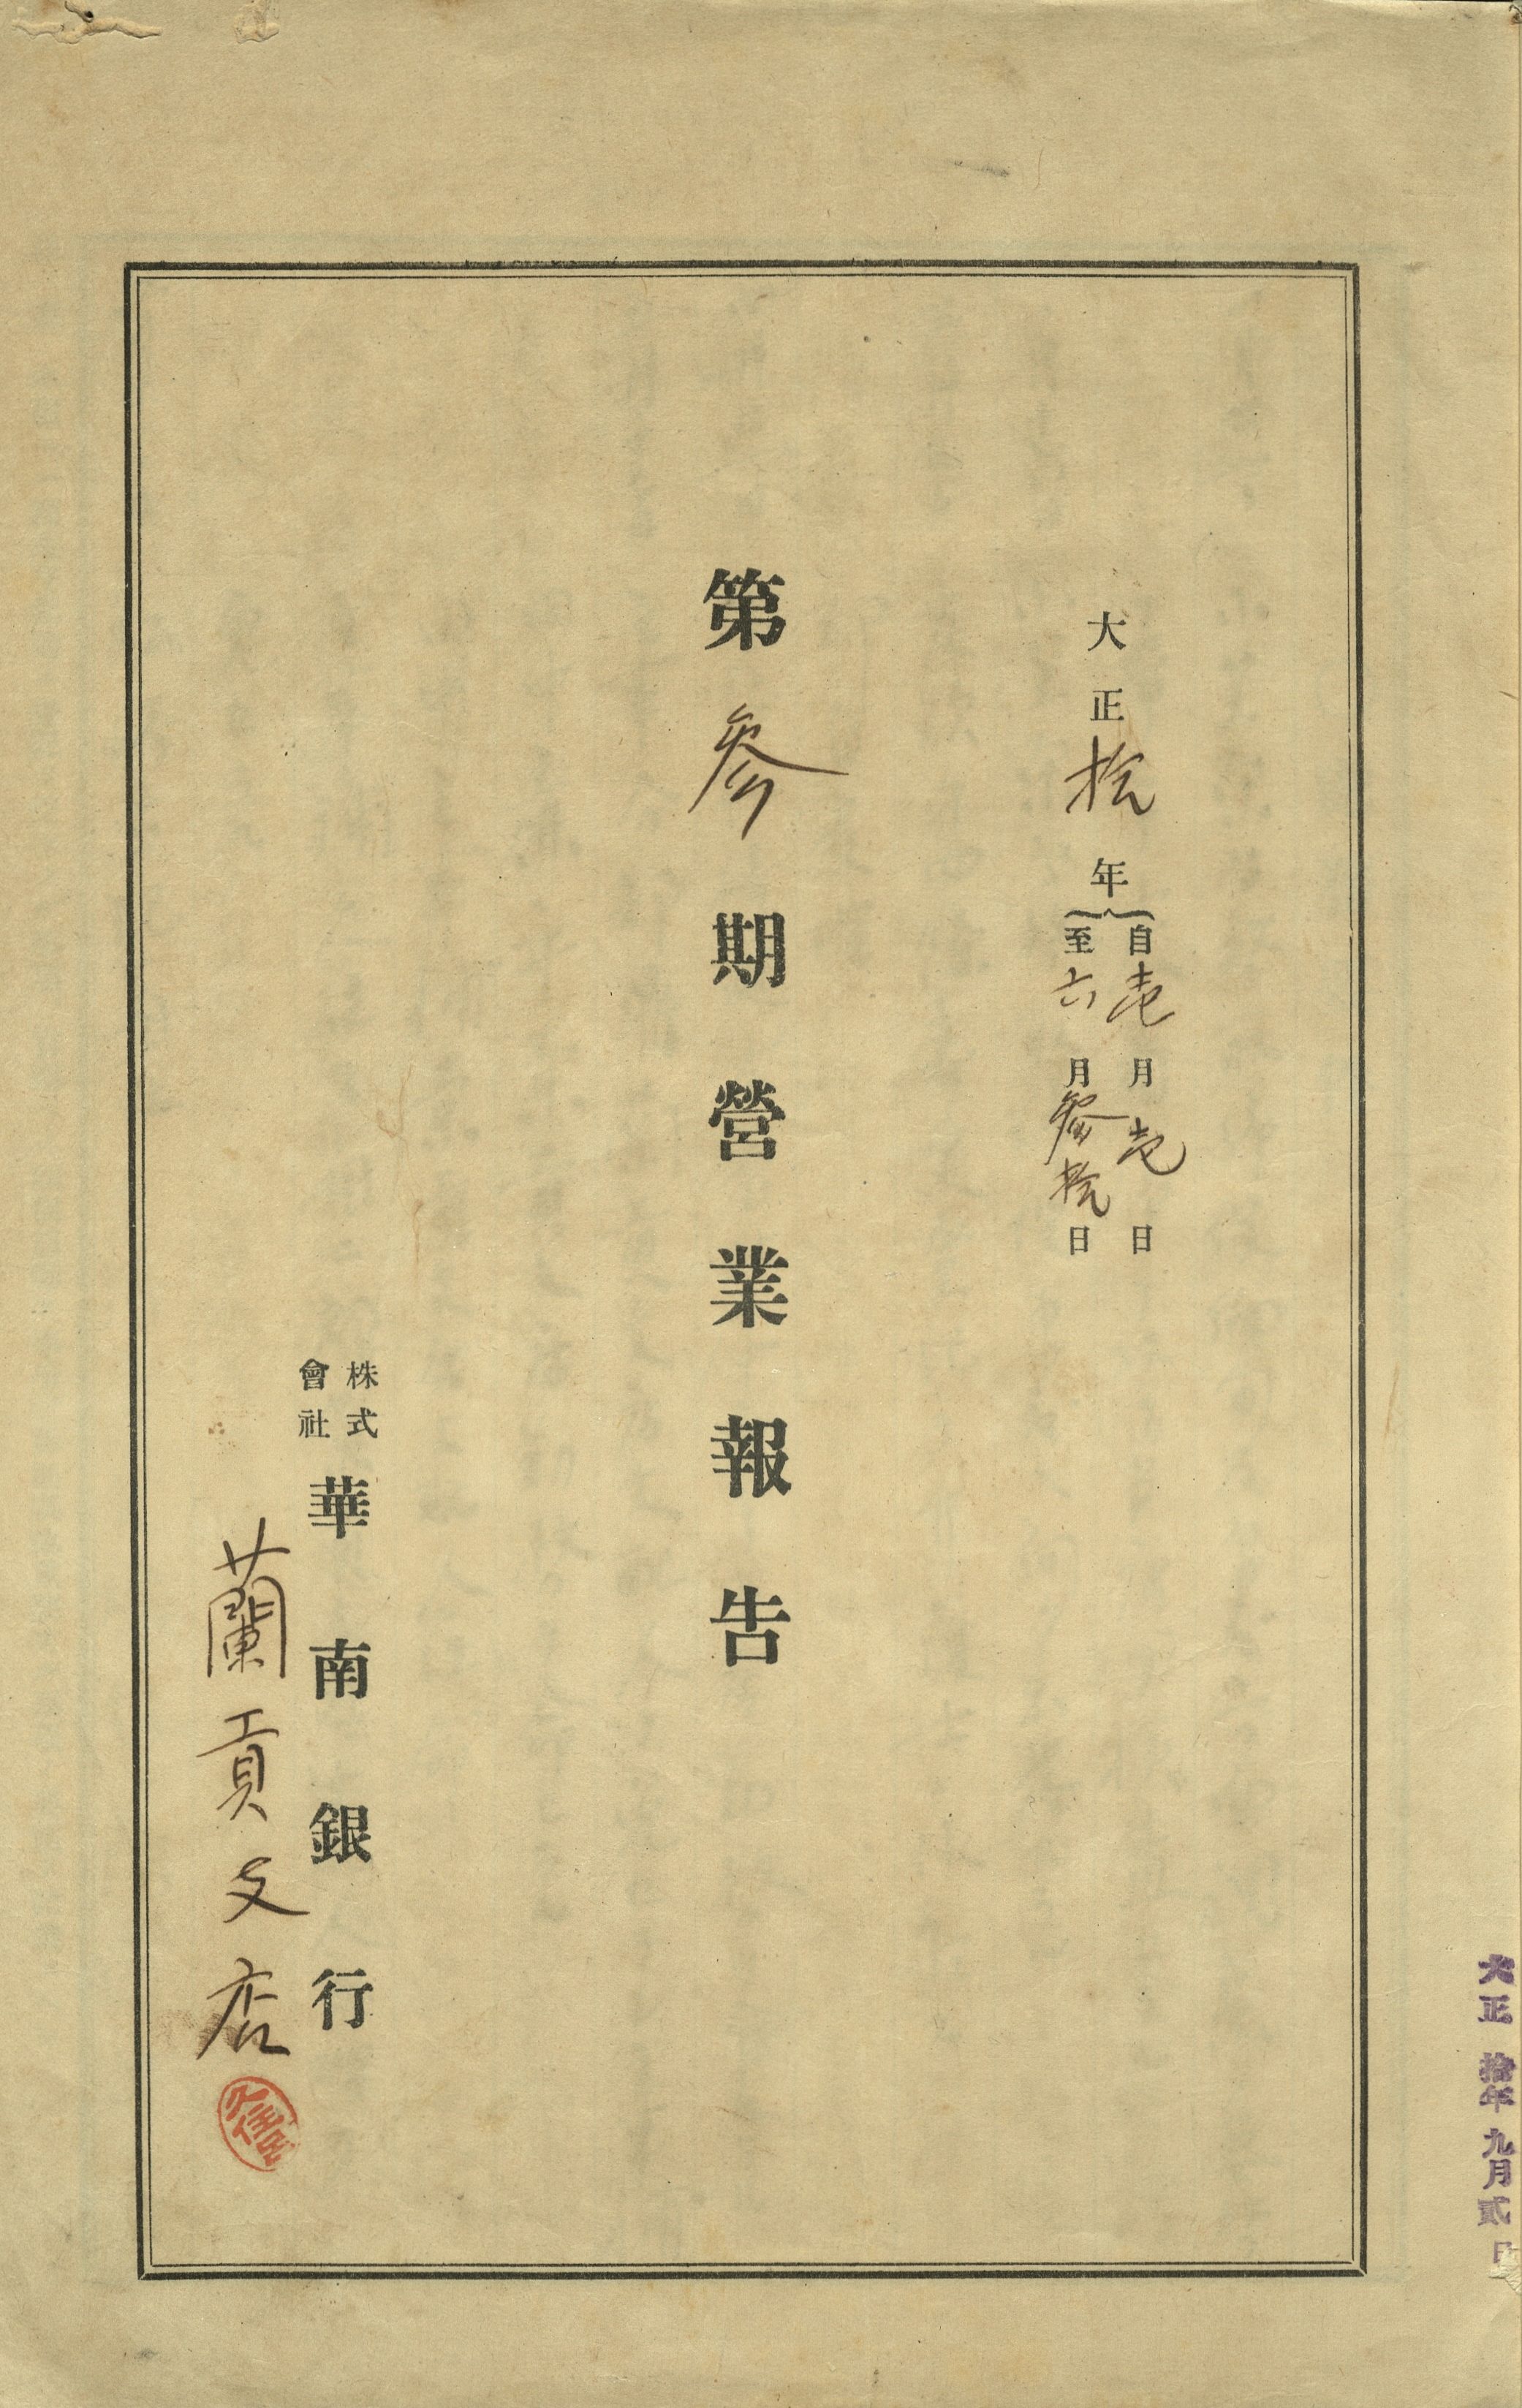 大正拾年自壱月壱日
至六月參拾日
第參期營業報告
株式會社華南銀行
蘭貢支店
大正拾年九月貳日